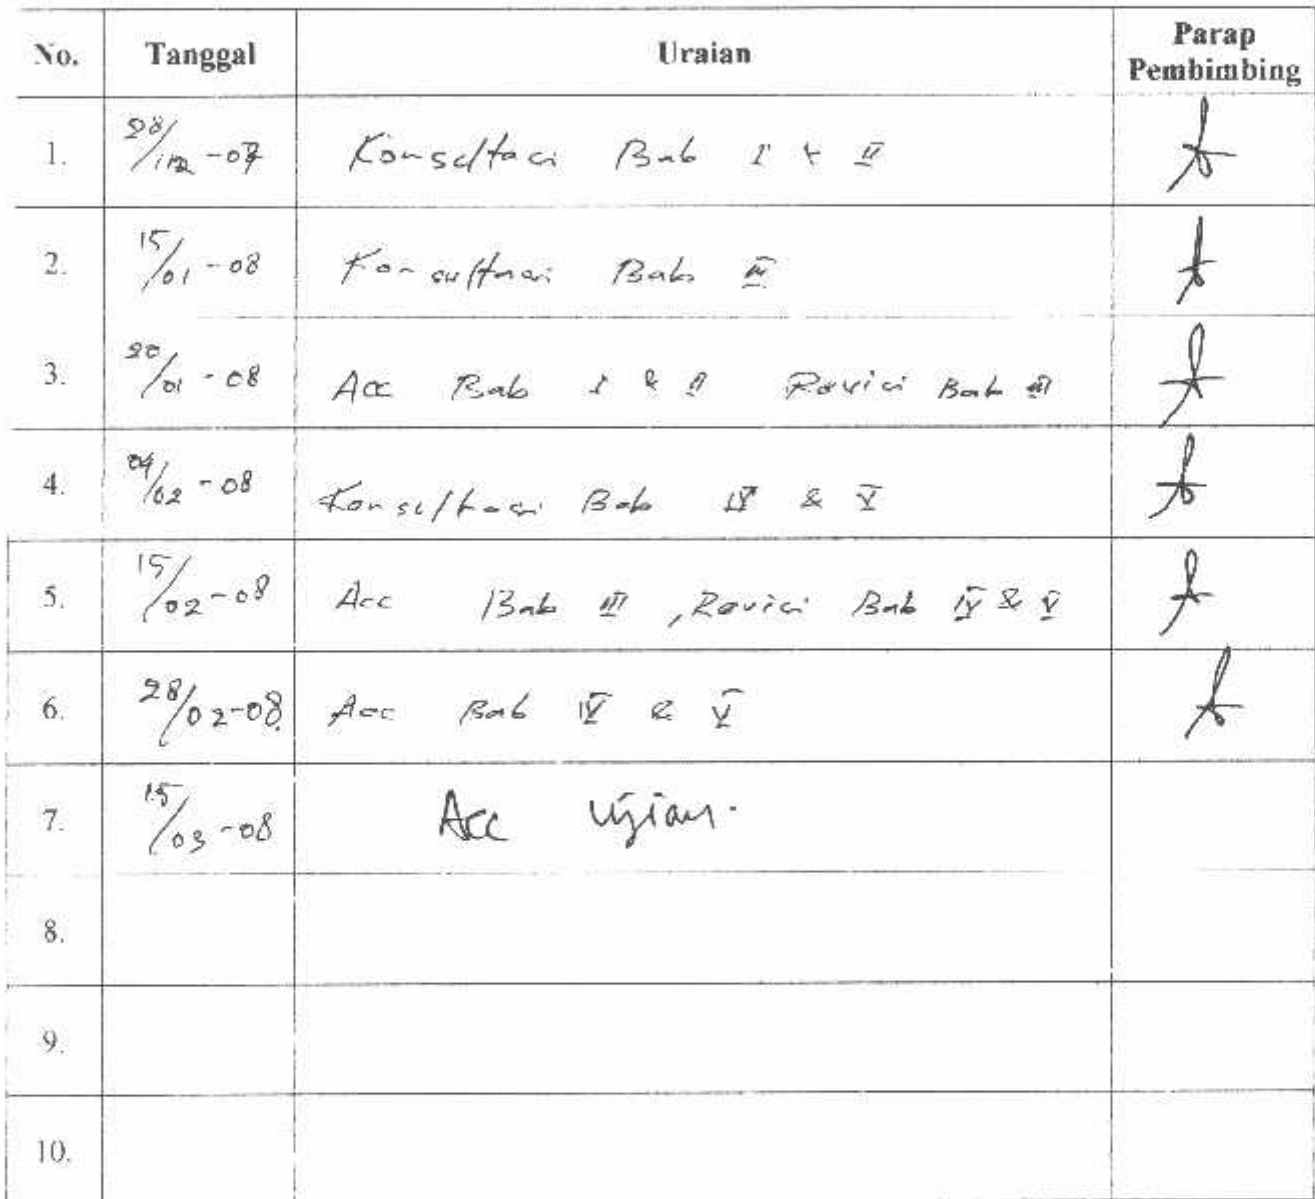 No. Tanggal Uraian Parap
Pembimbing
1. 28/12-07 Konsultasi Bab I & II
2. 15/01-08 Konsultasi Bab III
3. 20/01-08 Acc Bab I & II Revisi Bab III
4. 04/02-08 Konsultasi Bab IV & V
5. 15/02-08 Acc Bab III, Revisi Bab IV & V
6. 28/02-08 Acc Bab IV & V
7. 15/03-08 Acc Ujian.
8.
9.
10.